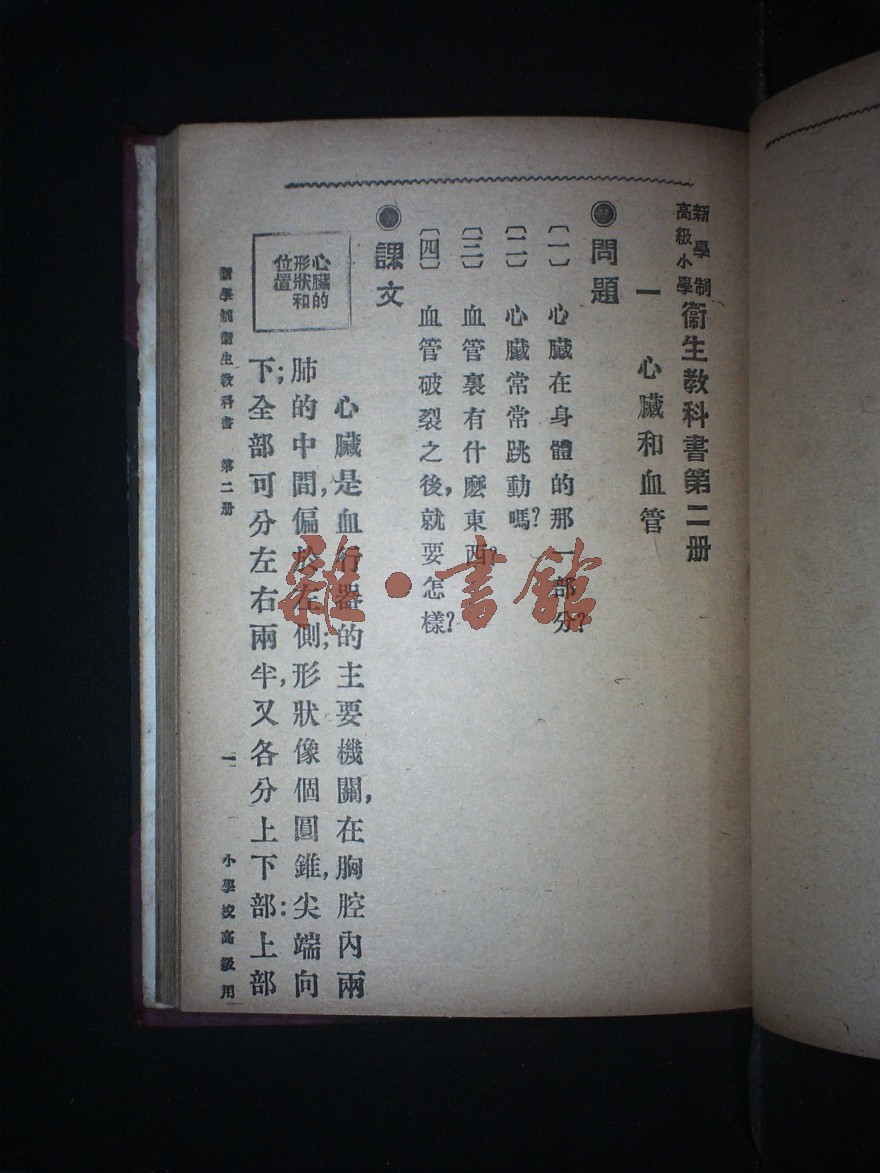 新學制
高級小學
衞生教科書第二册
一 心臟和血管
●問題
〔一〕 心臟在身體的那一部分?
〔二〕 心臟常常跳動嗎?
〔三〕 血管裏有什麽東西?
〔四〕 血管破裂之後,就要怎樣?
●課文
心臟的
形狀和
位置
心臟是血行器的主要機關,在胸腔內兩
肺的中間,偏於左側;形狀像個圓錐,尖端向
下;全部可分左右兩半,又各分上下部:上部
新學制衞生教科書 第二册 一 小學校高級用
雜·書館